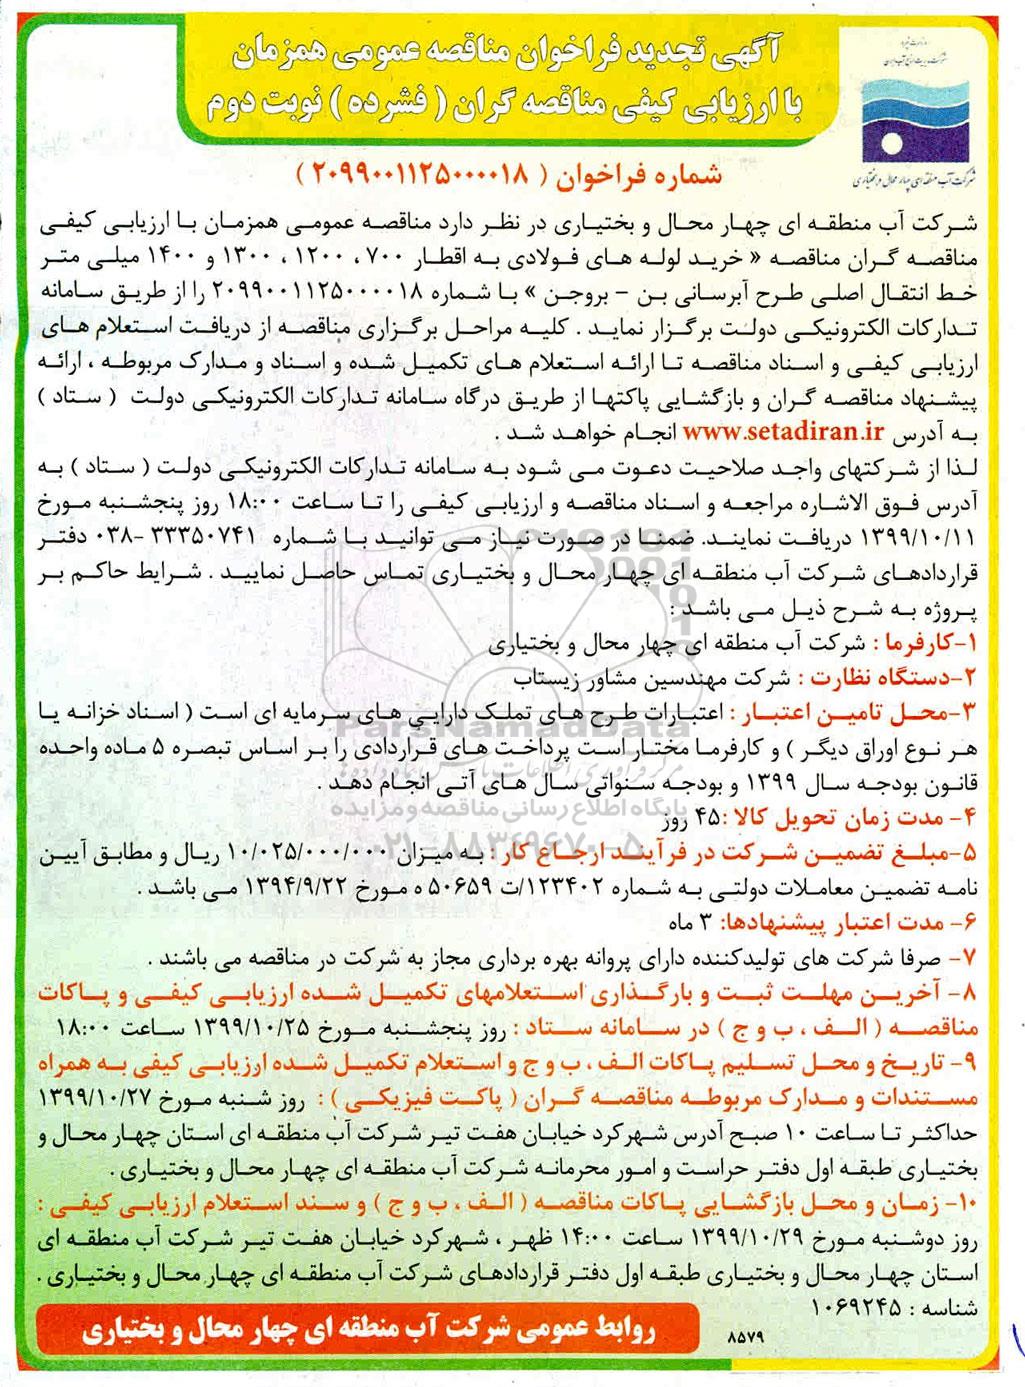 آگهی تجدید فراخوان مناقصه عمومی همزمان
با ارزیابی کیفی مناقصه گران ( فشرده ) نوبت دوم
شرکت آب منطقه ای چهار محال و بختیاری
شماره فراخوان ( ۲۰۹۹۰۰۱۱۲۵۰۰۰۰۱۸ )
شرکت آب منطقه ای چهار محال و بختیاری در نظر دارد مناقصه عمومی همزمان با ارزیابی کیفی
مناقصه گران مناقصه « خرید لوله های فولادی به اقطار ۷۰۰ ، ۱۲۰۰ ، ۱۳۰۰ و ۱۴۰۰ میلی متر
خط انتقال اصلی طرح آبرسانی بن - بروجن » با شماره ۲۰۹۹۰۰۱۱۲۵۰۰۰۰۱۸ را از طریق سامانه
تدارکات الکترونیکی دولت برگزار نماید . کلیه مراحل برگزاری مناقصه از دریافت استعلام های
ارزیابی کیفی و اسناد مناقصه تا ارائه استعلام های تکمیل شده و اسناد و مدارک مربوطه ، ارائه
پیشنهاد مناقصه گران و بازگشایی پاکتها از طریق درگاه سامانه تدارکات الکترونیکی دولت ( ستاد )
به آدرس www.setadiran.ir انجام خواهد شد .
لذا از شرکتهای واجد صلاحیت دعوت می شود به سامانه تدارکات الکترونیکی دولت ( ستاد ) به
آدرس فوق الاشاره مراجعه و اسناد مناقصه و ارزیابی کیفی را تا ساعت ۱۸:۰۰ روز پنجشنبه مورخ
۱۳۹۹/۱۰/۱۱ دریافت نمایند. ضمنا در صورت نیاز می توانید با شماره ۳۳۳۵۰۷۴۱ -۰۳۸ دفتر
قراردادهای شرکت آب منطقه ای چهار محال و بختیاری تماس حاصل نمایید . شرایط حاکم بر
پروژه به شرح ذیل می باشد :
۱-کارفرما : شرکت آب منطقه ای چهار محال و بختیاری
۲-دستگاه نظارت : شرکت مهندسین مشاور زیستاب
۳-محل تامین اعتبار : اعتبارات طرح های تملک دارایی های سرمایه ای است ( اسناد خزانه یا
هر نوع اوراق دیگر ) و کارفرما مختار است پرداخت های قراردادی را بر اساس تبصره ۵ ماده واحده
قانون بودجه سال ۱۳۹۹ و بودجه سنواتی سال های آتی انجام دهد .
۴- مدت زمان تحویل کالا :۴۵ روز
۵-مبلغ تضمین شرکت در فرآیند ارجاع کار : به میزان ۱۰/۰۲۵/۰۰۰/۰۰۰ ریال و مطابق آیین
نامه تضمین معاملات دولتی به شماره ۱۲۳۴۰۲/ت ۵۰۶۵۹ ه مورخ ۱۳۹۴/۹/۲۲ می باشد .
۶- مدت اعتبار پیشنهادها: ۳ ماه
۷- صرفا شرکت های تولیدکننده دارای پروانه بهره برداری مجاز به شرکت در مناقصه می باشند .
۸- آخرین مهلت ثبت و بارگذاری استعلامهای تکمیل شده ارزیابی کیفی و پاکات
مناقصه ( الف ، ب و ج ) در سامانه ستاد : روز پنجشنبه مورخ ۱۳۹۹/۱۰/۲۵ ساعت ۱۸:۰۰
۹- تاریخ و محل تسلیم پاکات الف ، ب و ج و استعلام تکمیل شده ارزیابی کیفی به همراه
مستندات و مدارک مربوطه مناقصه گران ( پاکت فیزیکی ) : روز شنبه مورخ ۱۳۹۹/۱۰/۲۷
حداکثر تا ساعت ۱۰ صبح آدرس شهرکرد خیابان هفت تیر شرکت آب منطقه ای استان چهار محال و
بختیاری طبقه اول دفتر حراست و امور محرمانه شرکت آب منطقه ای چهار محال و بختیاری .
۱۰- زمان و محل بازگشایی پاکات مناقصه ( الف ، ب و ج ) و سند استعلام ارزیابی کیفی :
روز دوشنبه مورخ ۱۳۹۹/۱۰/۲۹ ساعت ۱۴:۰۰ ظهر ، شهرکرد خیابان هفت تیر شرکت آب منطقه ای
استان چهار محال و بختیاری طبقه اول دفتر قراردادهای شرکت آب منطقه ای چهار محال و بختیاری .
شناسه : ۱۰۶۹۲۴۵
۸۵۷۹
روابط عمومی شرکت آب منطقه ای چهار محال و بختیاری
ParsNamadData
پایگاه اطلاع رسانی مناقصه و مزایده
۰۲۱-۸۸۳۴۹۶۷۰-۵